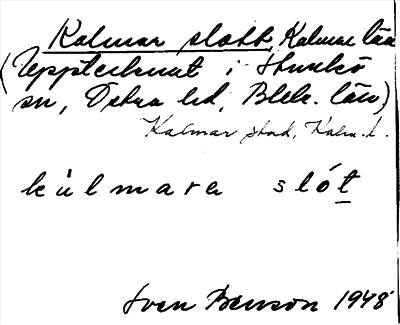 Kalmar slott, Kalmar län
(Upptecknat i Sturkö
sn, Östra hd, Blek. län)
Kalmar stad, Kalm. l.
kúlmara slót
Sven Benson 1948